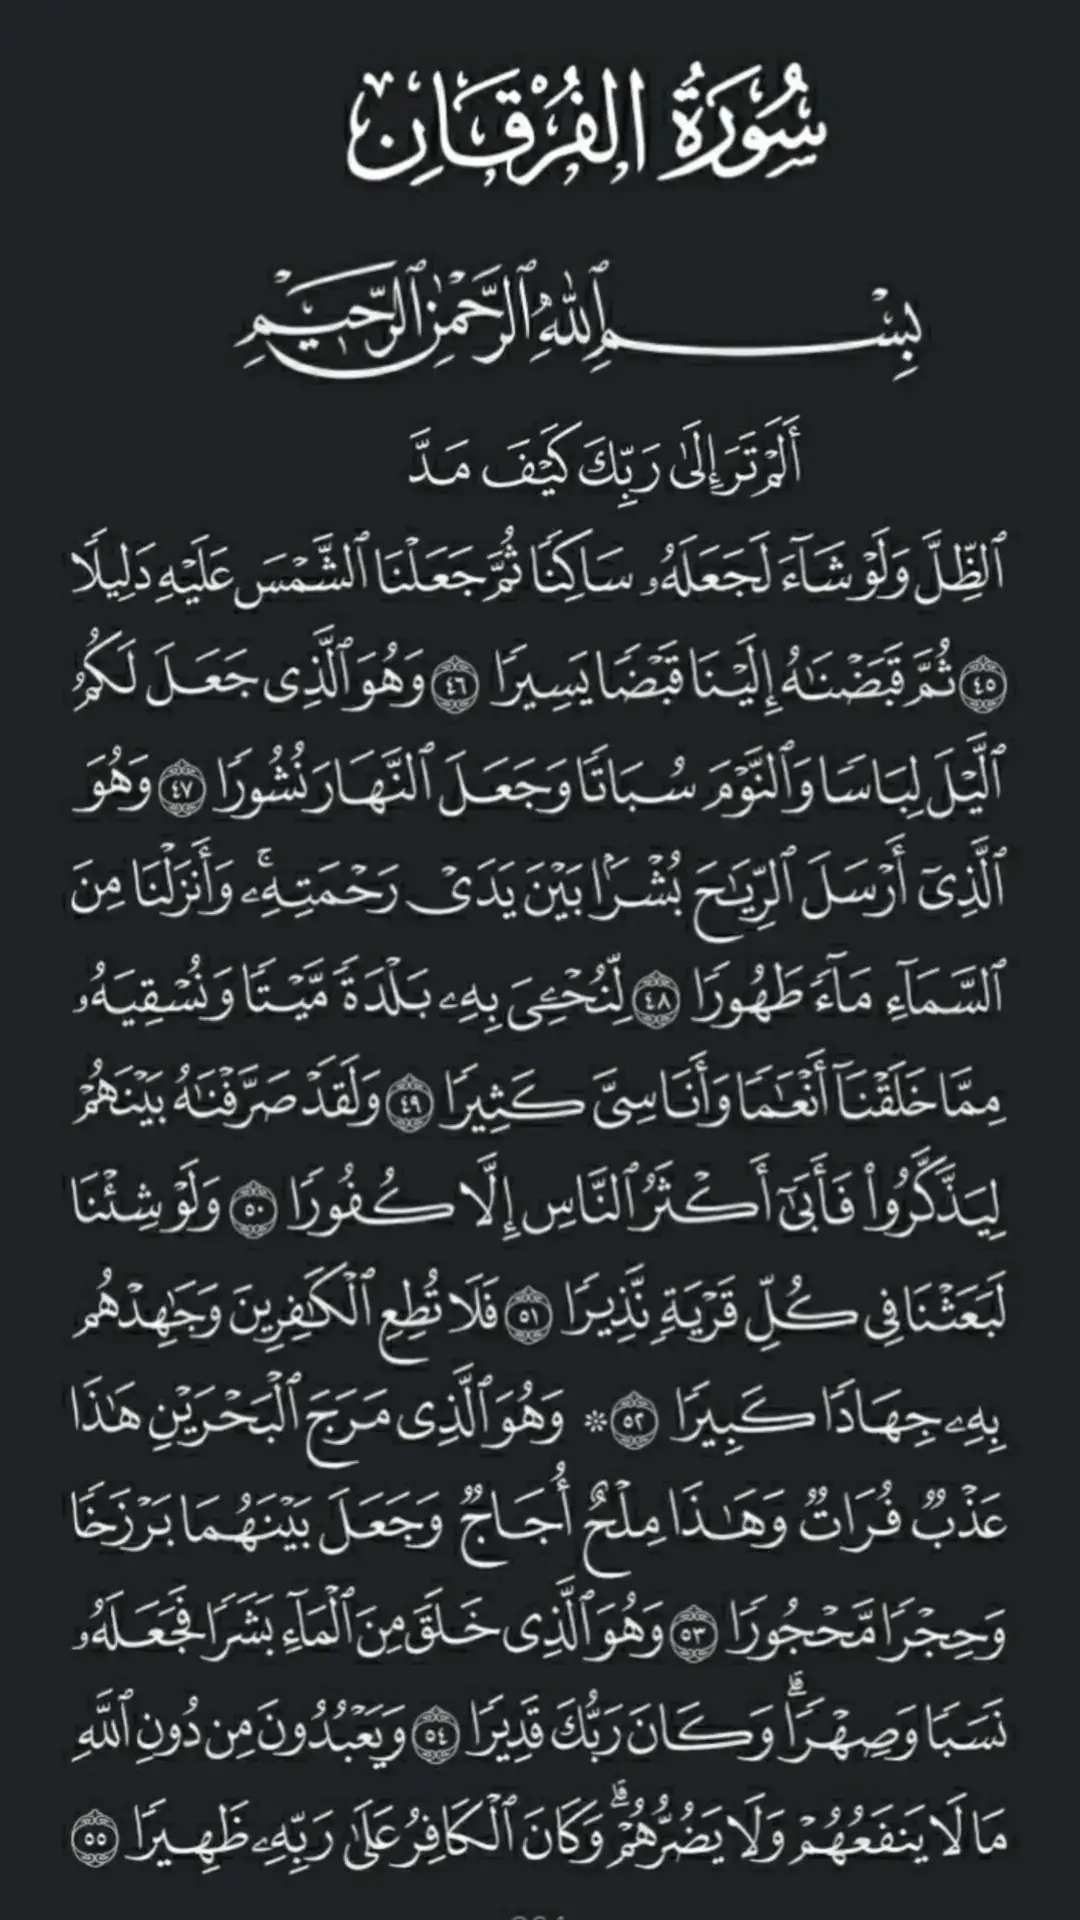 سُورَةُ الفُرْقَانِ
بِسْمِ ٱللَّهِ ٱلرَّحْمَٰنِ ٱلرَّحِيمِ
أَلَمْ تَرَ إِلَىٰ رَبِّكَ كَيْفَ مَدَّ
ٱلظِّلَّ وَلَوْ شَآءَ لَجَعَلَهُۥ سَاكِنًا ثُمَّ جَعَلْنَا ٱلشَّمْسَ عَلَيْهِ دَلِيلًا
٤٥ ثُمَّ قَبَضْنَٰهُ إِلَيْنَا قَبْضًا يَسِيرًا ٤٦ وَهُوَ ٱلَّذِى جَعَلَ لَكُمُ
ٱلَّيْلَ لِبَاسًا وَٱلنَّوْمَ سُبَاتًا وَجَعَلَ ٱلنَّهَارَ نُشُورًا ٤٧ وَهُوَ
ٱلَّذِىٓ أَرْسَلَ ٱلرِّيَٰحَ بُشْرًۢا بَيْنَ يَدَىْ رَحْمَتِهِۦۚ وَأَنزَلْنَا مِنَ
ٱلسَّمَآءِ مَآءً طَهُورًا ٤٨ لِّنُحْـِۧىَ بِهِۦ بَلْدَةً مَّيْتًا وَنُسْقِيَهُۥ
مِمَّا خَلَقْنَآ أَنْعَٰمًا وَأَنَاسِىَّ كَثِيرًا ٤٩ وَلَقَدْ صَرَّفْنَٰهُ بَيْنَهُمْ
لِيَذَّكَّرُوا۟ فَأَبَىٰٓ أَكْثَرُ ٱلنَّاسِ إِلَّا كُفُورًا ٥٠ وَلَوْ شِئْنَا
لَبَعَثْنَا فِى كُلِّ قَرْيَةٍ نَّذِيرًا ٥١ فَلَا تُطِعِ ٱلْكَٰفِرِينَ وَجَٰهِدْهُم
بِهِۦ جِهَادًا كَبِيرًا ٥٢ ۞ وَهُوَ ٱلَّذِى مَرَجَ ٱلْبَحْرَيْنِ هَٰذَا
عَذْبٌ فُرَاتٌ وَهَٰذَا مِلْحٌ أُجَاجٌ وَجَعَلَ بَيْنَهُمَا بَرْزَخًا
وَحِجْرًا مَّحْجُورًا ٥٣ وَهُوَ ٱلَّذِى خَلَقَ مِنَ ٱلْمَآءِ بَشَرًا فَجَعَلَهُۥ
نَسَبًا وَصِهْرًاۗ وَكَانَ رَبُّكَ قَدِيرًا ٥٤ وَيَعْبُدُونَ مِن دُونِ ٱللَّهِ
مَا لَا يَنفَعُهُمْ وَلَا يَضُرُّهُمْۗ وَكَانَ ٱلْكَافِرُ عَلَىٰ رَبِّهِۦ ظَهِيرًا ٥٥